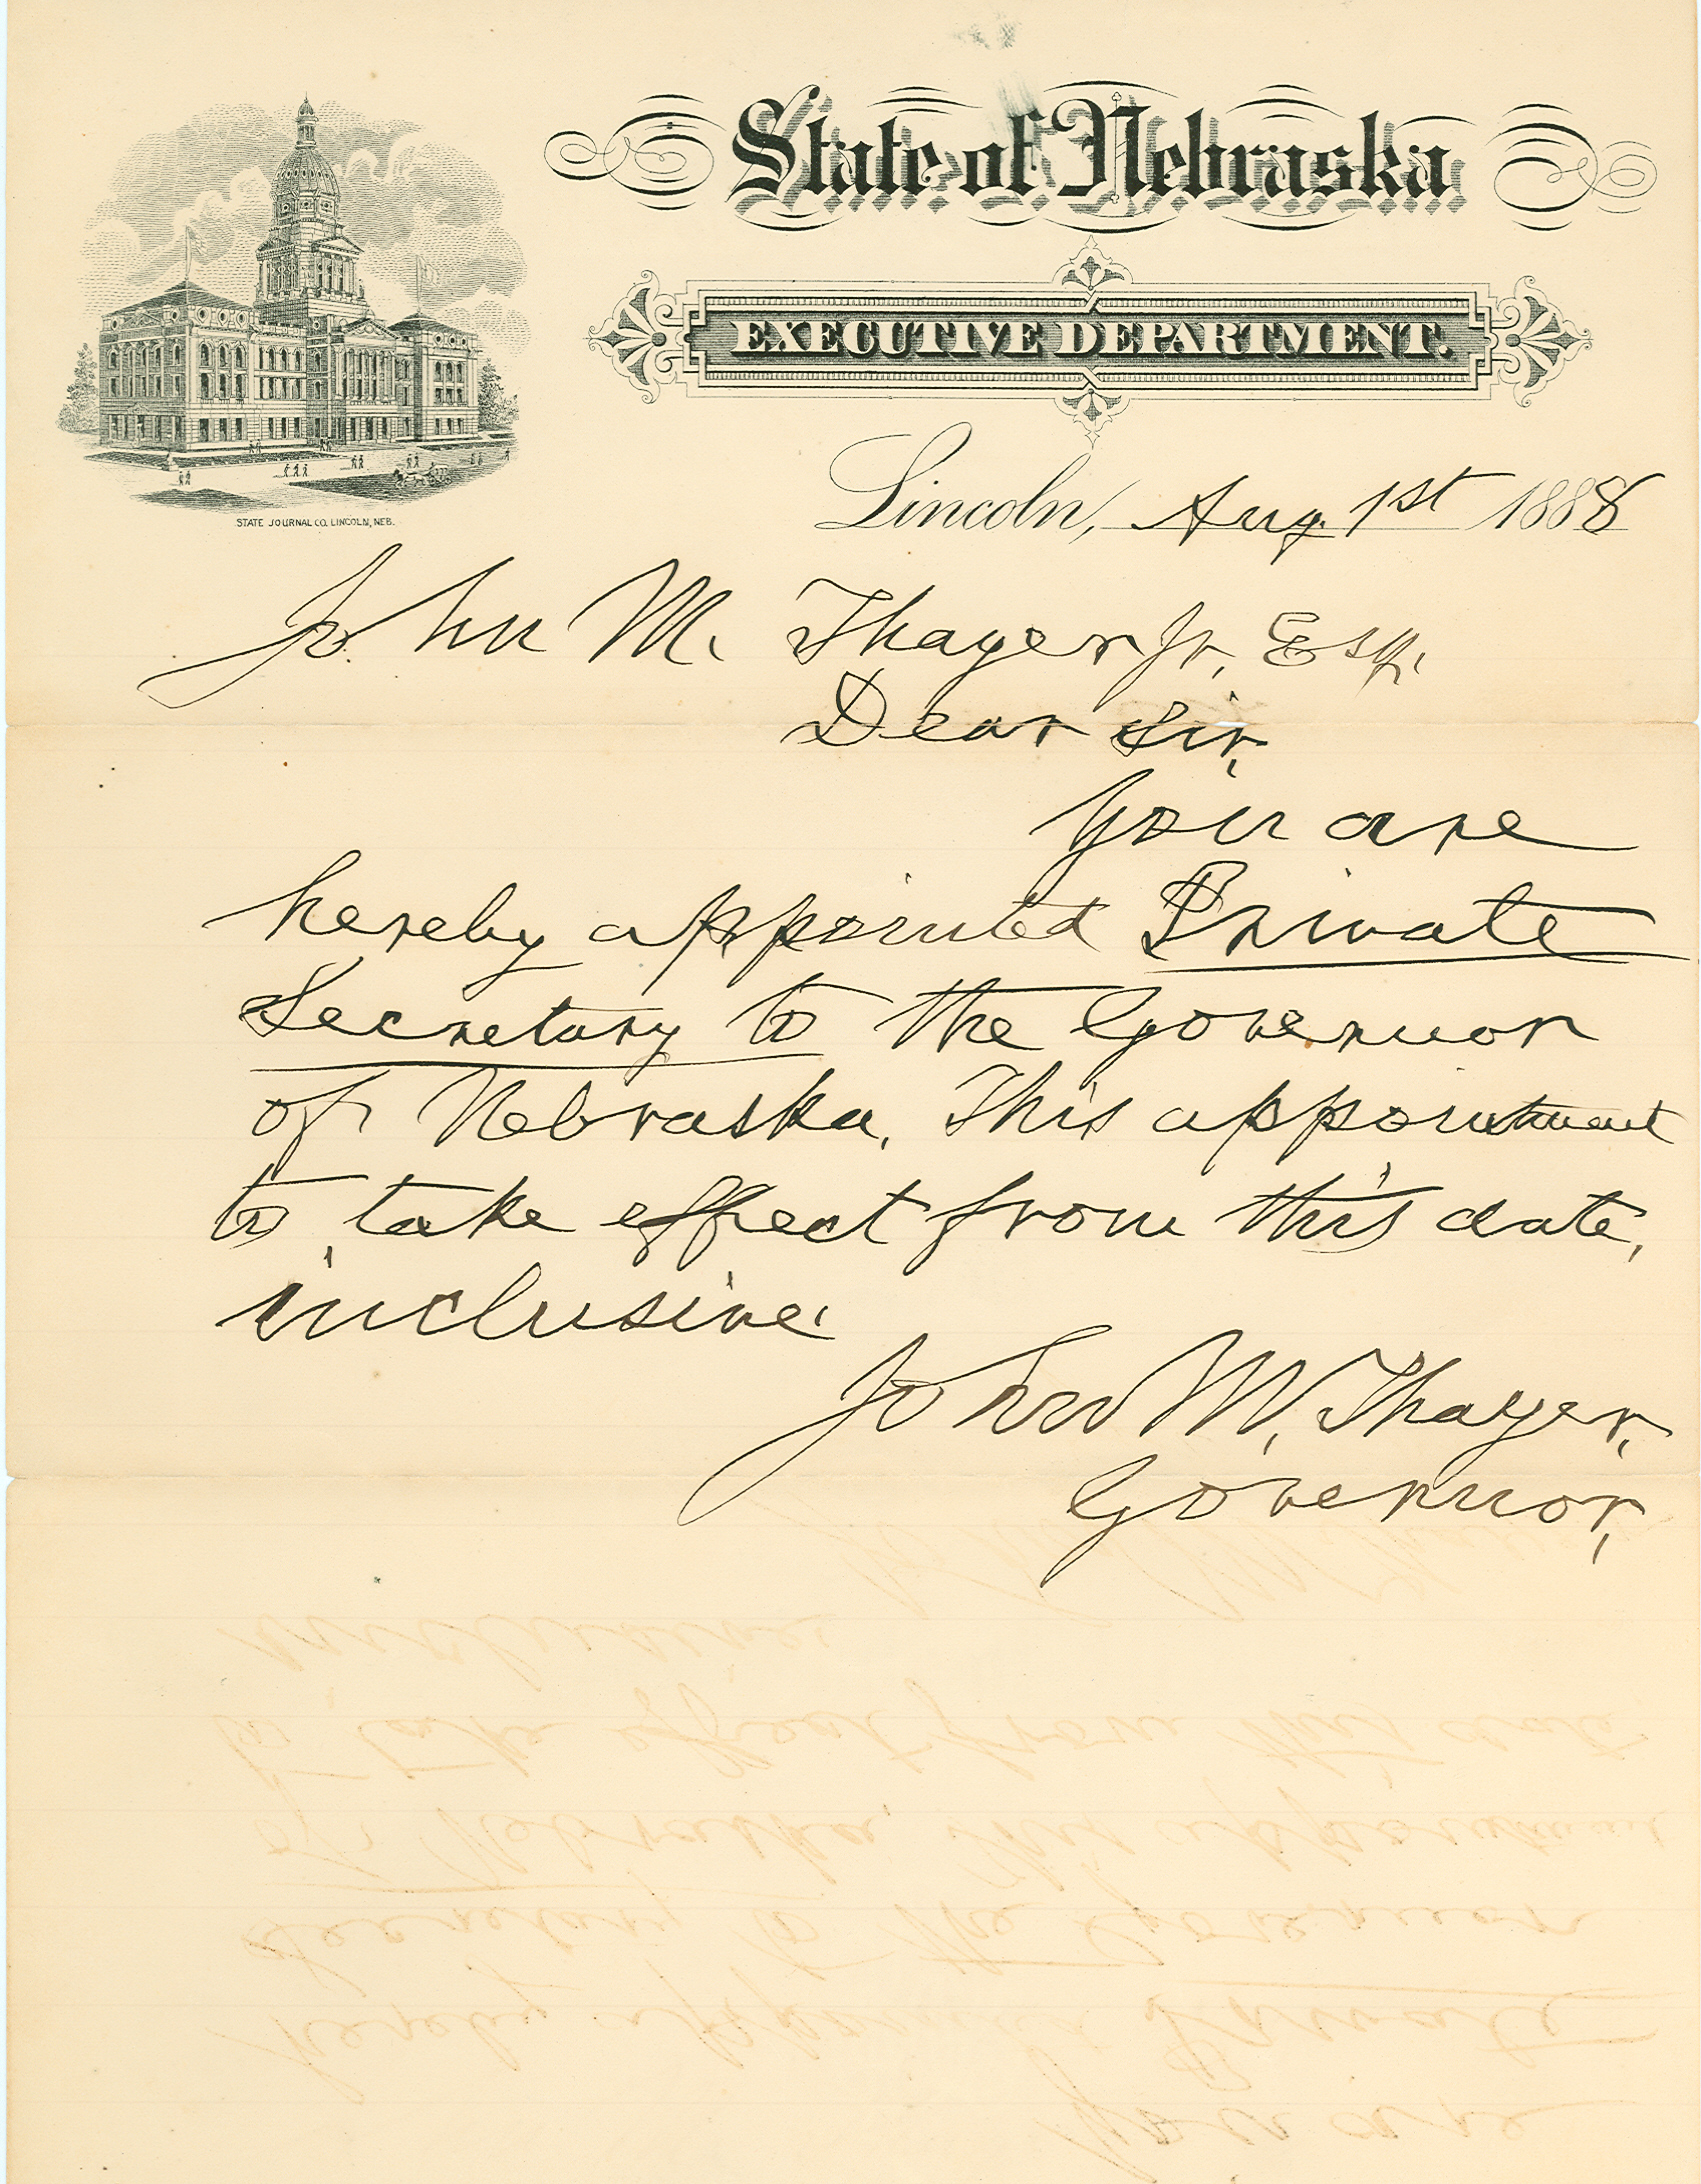 State of Nebraska
EXECUTIVE DEPARTMENT.
STATE JOURNAL CO. LINCOLN, NEB.
Lincoln, Aug. 1st 1888
John M. Thayer Jr, Esq.
Dear Sir,
You are
hereby appointed Private
Secretary to the Governor
of Nebraska. This appointment
to take effect from this date,
inclusive.
John M. Thayer,
Governor,